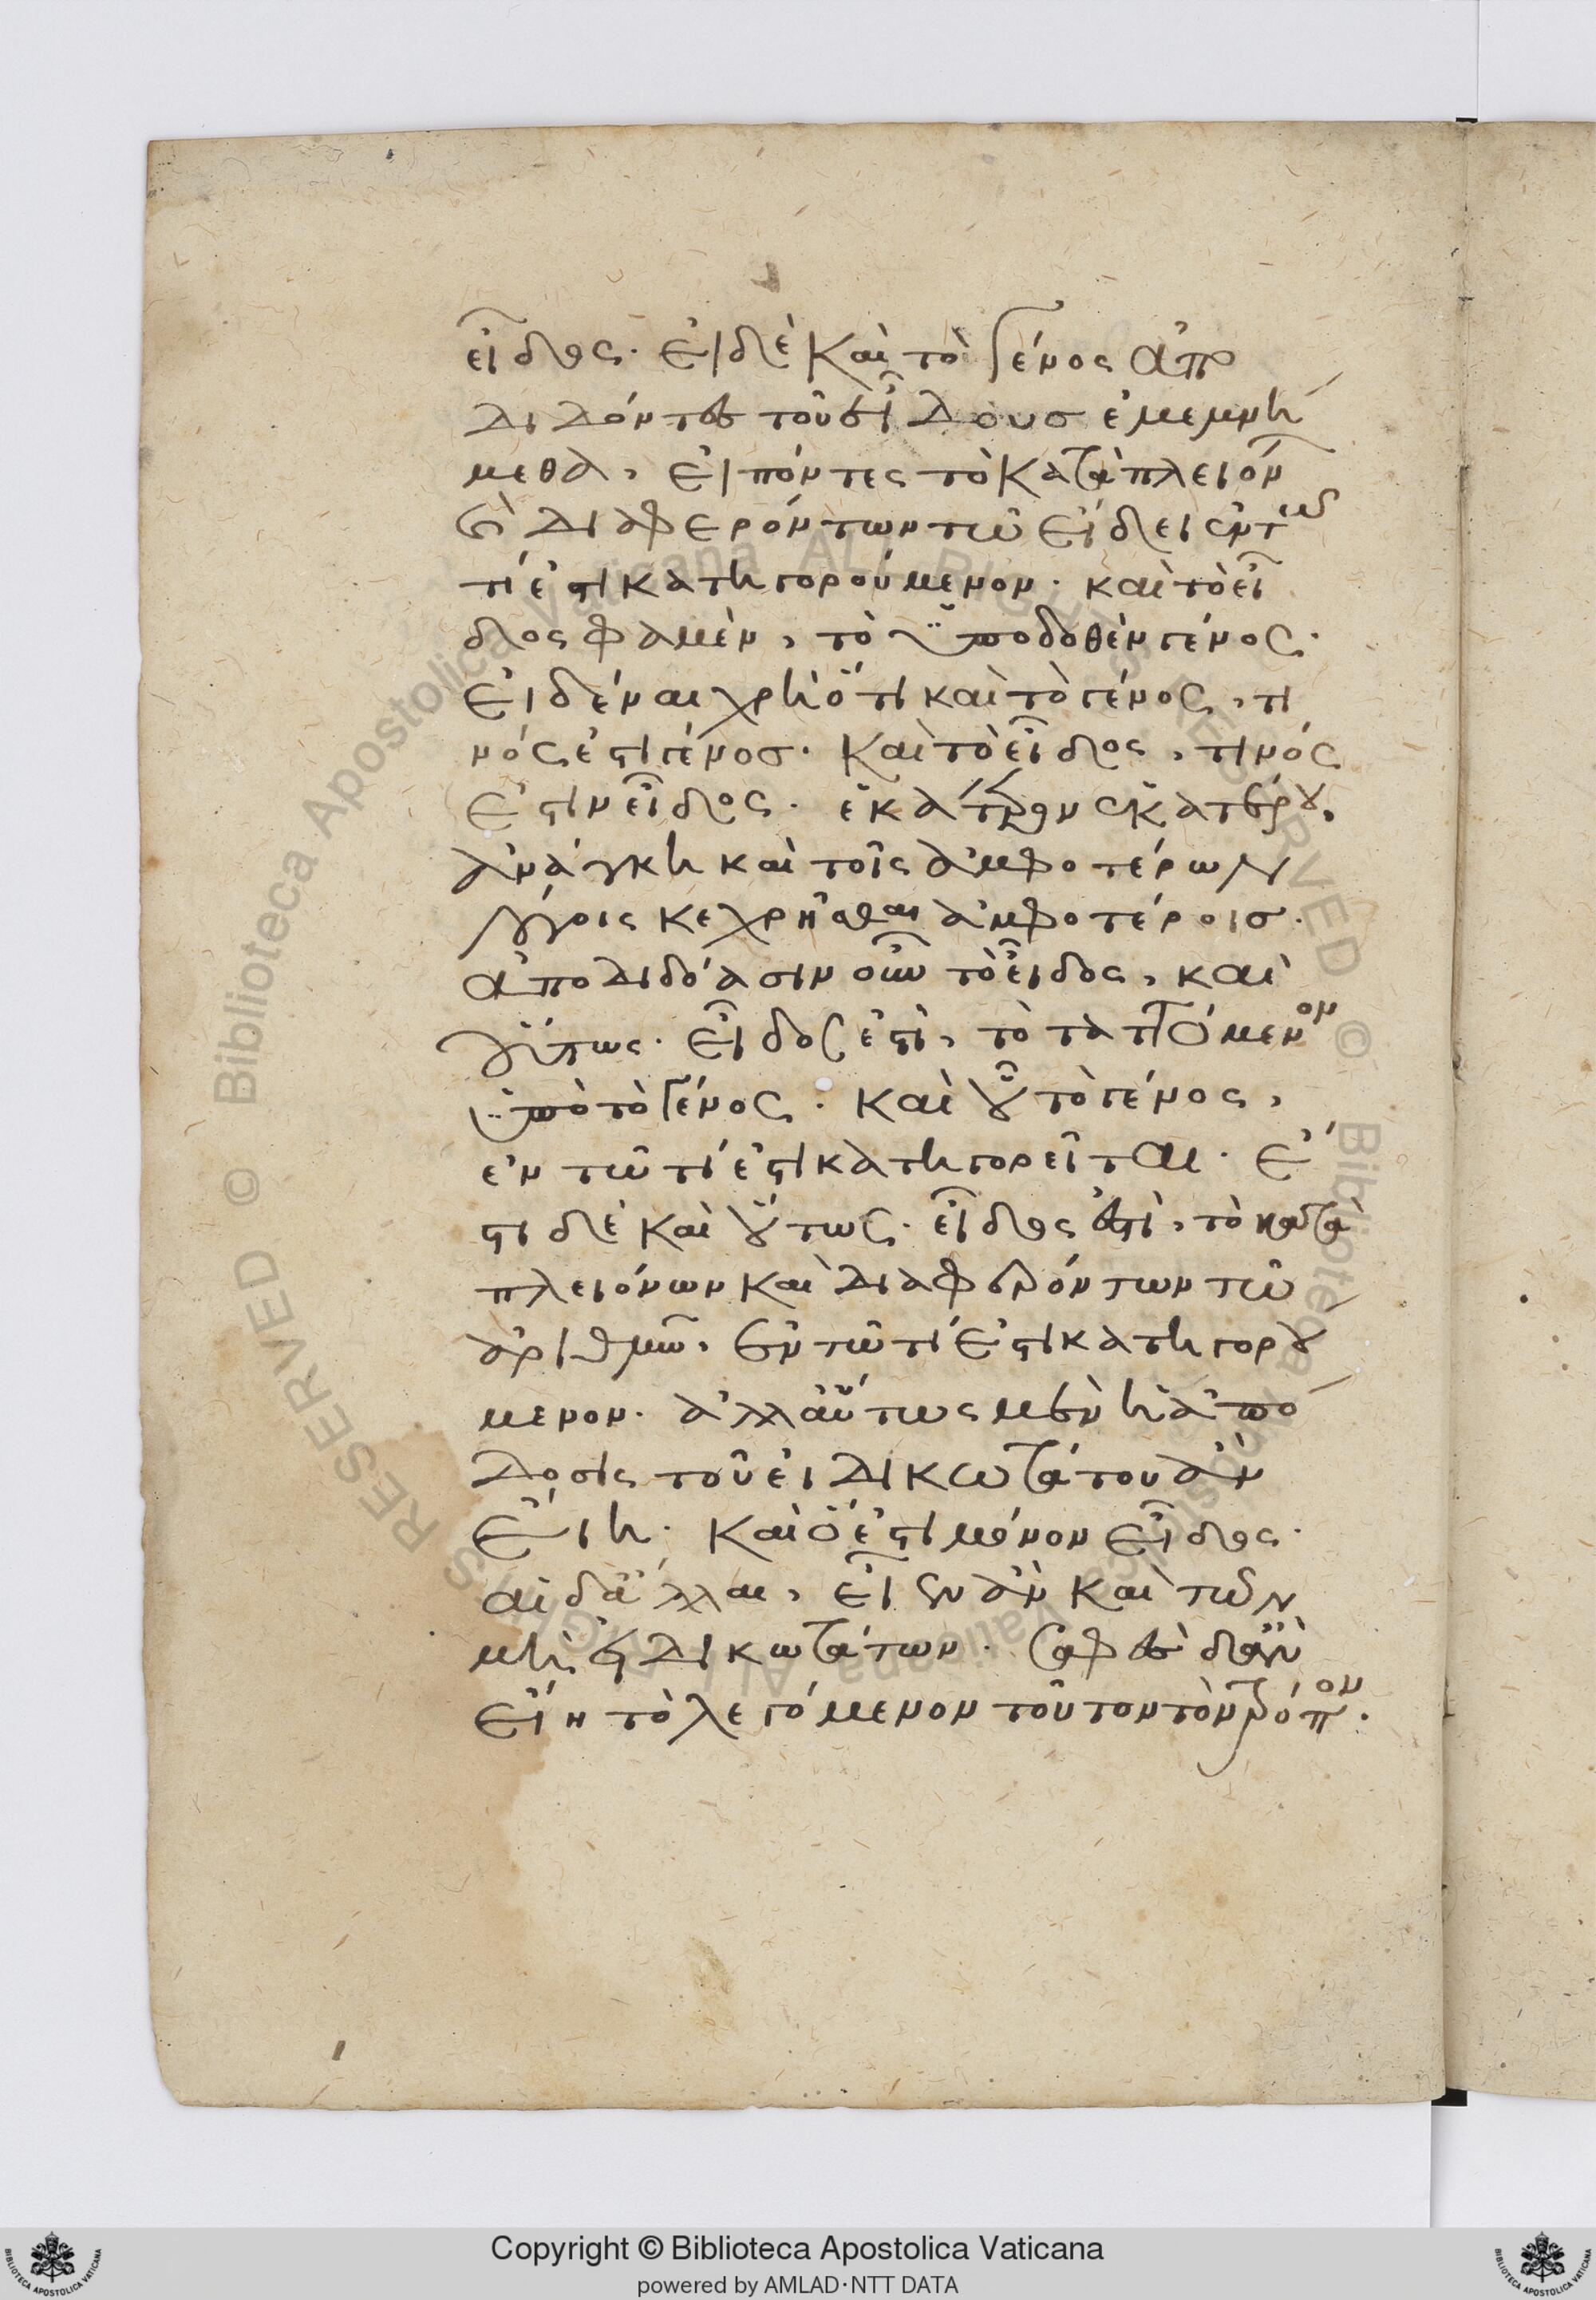 εἶδος. εἰ δὲ καὶ τὸ γένος ἀπο
διδόντες τοῦ εἴδους ἐμεμνή
μεθα, εἰπόντες τὸ κατὰ πλειόνων
καὶ διαφερόντων τῷ εἴδει ἐν τῷ
τί ἐστι κατηγορούμενον. καὶ τὸ εἶ
δος φαμὲν, τὸ ὑποδοθὲν γένος.
εἰδέναι χρὴ ὅτι καὶ τὸ γένος, τι
νός ἐστι γένος. καὶ τὸ εἶδος, τινός
ἐστιν εἶδος. ἑκάτερον ἑκατέρου,
ἀνάγκη καὶ τοῖς ἀμφοτέρων
λόγοις κεχρῆσθαι ἀμφοτέροις.
ἀποδιδόασιν οὖν τὸ εἶδος, καὶ
οὕτως. εἶδός ἐστι, τὸ ταττόμενον
ὑπὸ τὸ γένος. καὶ οὗ τὸ γένος,
ἐν τῷ τί ἐστι κατηγορεῖται. ἔ
στι δὲ καὶ οὕτως. εἶδος ἐστὶ, τὸ κατὰ
πλειόνων καὶ διαφερόντων τῷ
ἀριθμῷ, ἐν τῷ τί ἐστι κατηγορού
μενον. ἀλλ' αὕτως μὲν ἡ ἀπό
δοσις τοῦ εἰδικωτάτου ἂν
εἴη. καὶ ὅ ἐστι μόνον εἶδος.
αἱ δ' ἄλλαι, εἶεν ἂν καὶ τῶν
μὴ εἰδικωτάτων. σαφὲς δ' ἂν
εἴη τὸ λεγόμενον τοῦτον τὸν τρόπον.
Copyright © Biblioteca Apostolica Vaticana
powered by AMLAD·NTT DATA